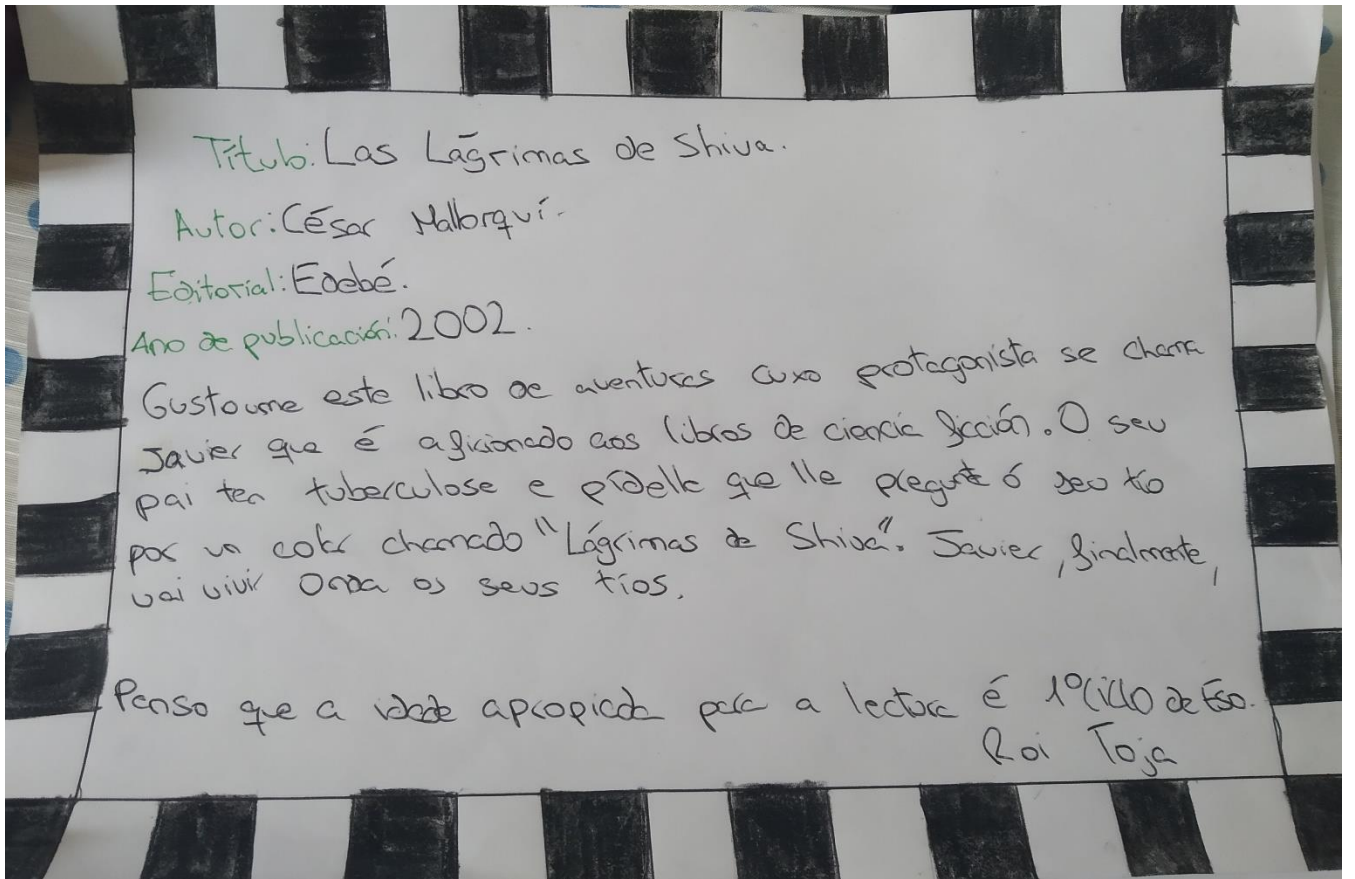 Título: Las Lágrimas de Shiva.
Autor: César Mallorquí.
Editorial: Edebé.
Ano de publicación: 2002.
Gustoume este libro de aventuras cuxo protagonista se chama
Javier que é aficionado aos libros de ciencia ficción. O seu
pai ten tuberculose e pídelle que lle pregunte ó seu tío
por un colar chamado "Lágrimas de Shiva". Javier, finalmente,
vai vivir onda os seus tíos.
Penso que a idade apropiada para a lectura é 1º Ciclo de Eso.
Roi Toja